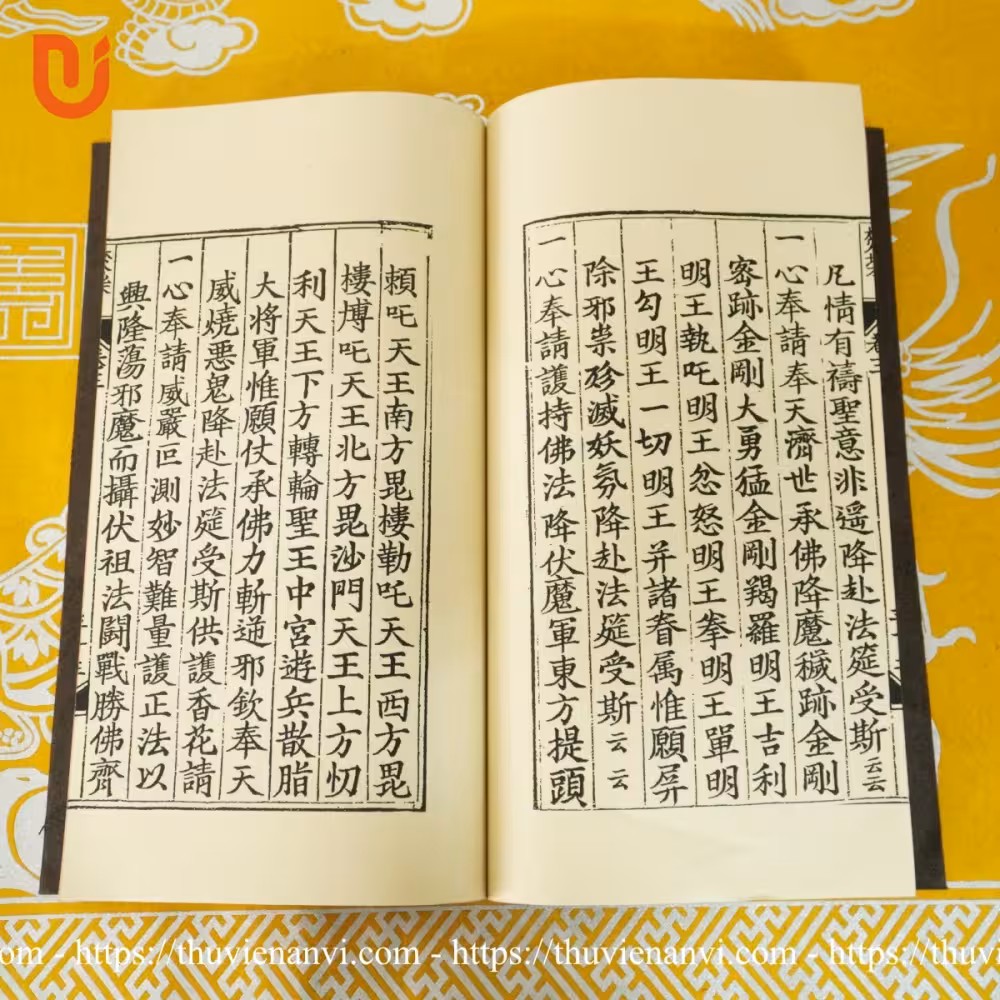 凡情有禱聖意非遥降赴法筵受斯云云
一心奉請奉天濟世承佛降魔穢跡金剛
密跡金剛大勇猛金剛羯羅明王吉利
明王執吒明王忿怒明王拳明王單明
王勾明王一切明王并諸眷属惟願屏
除邪祟殄滅妖氛降赴法筵受斯云云
一心奉請護持佛法降伏魔軍東方提頭
賴吒天王南方毘樓勒吒天王西方毘
樓博吒天王北方毘沙門天王上方忉
利天王下方轉輪聖王中宮遊兵散脂
大將軍惟願仗承佛力斬逓邪欽奉天
威燒悪鬼降赴法筵受斯供護香花請
一心奉請威嚴叵測妙智難量護正法以
興隆蕩邪魔而攝伏祖法闘戰勝佛齊
https://thuvienanvi.com - https://thuvienanvi.com - https://thuvienanvi.com